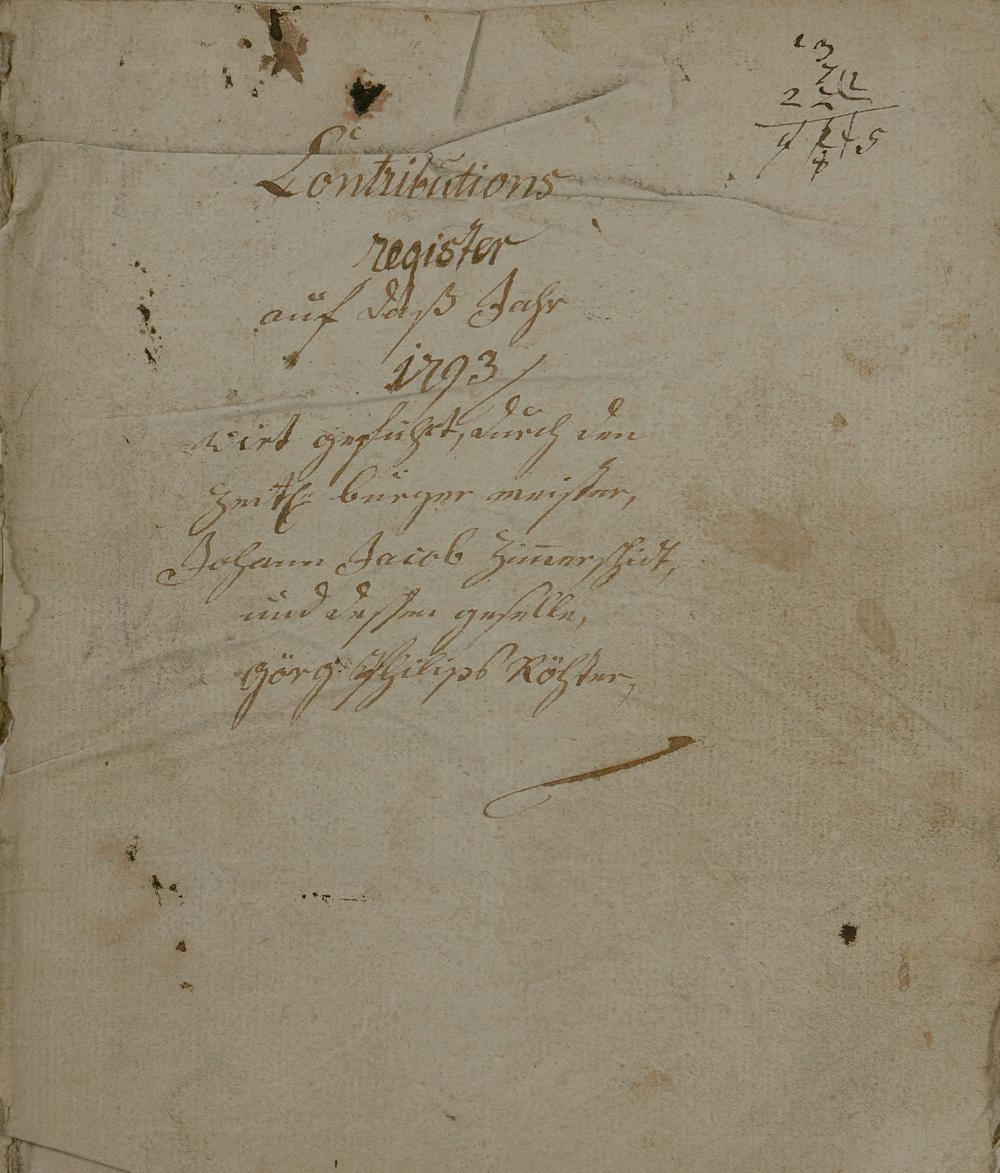 Contributions
register
auf daß Jahr
1793
wirt geführt, durch den
Zeitl: burger meister,
Johann Jacob Zimerschidt,
und dessen geselle,
Görg Philips Röhter,